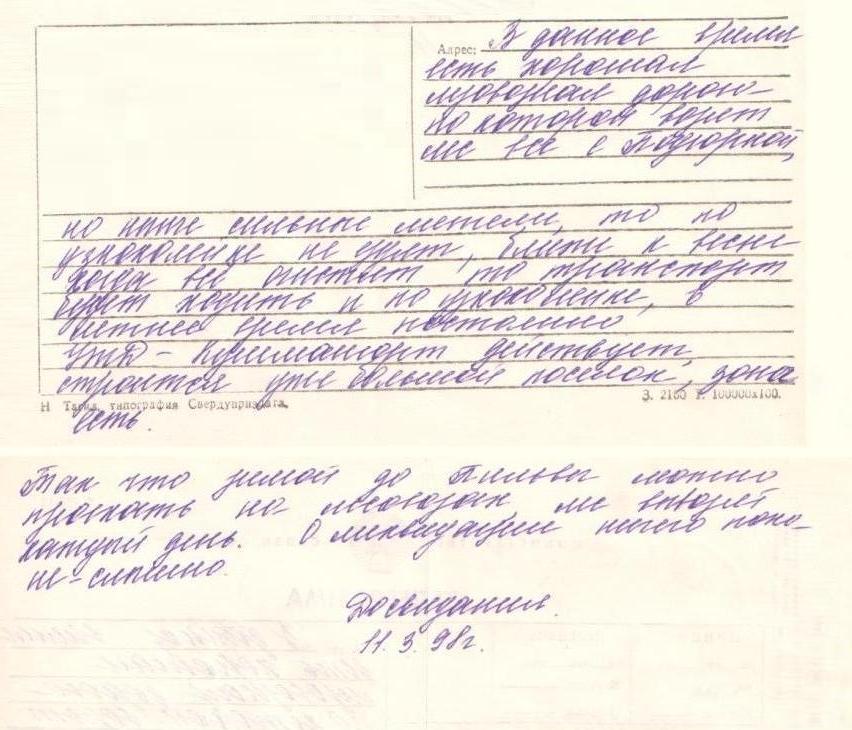 Адрес: В данное время
есть хорошая
лесовозная дорога
по которой возят
лес все с Подгорной,
но ныне сильные метели, то по
узкоколейке не едят, ближе к весне
когда всё растает то транспорт
будет ходить и по узкоколейке, в
летнее время постоянно
УЖД - действует,
строится уже большой поселок, зона
Н Тагил, типография Свердуприздата. З. 2160 Т. 100000х100.
есть.
Так что зимой до Пильвы можно
проехать на лесовозах, лес возят
каждый день. О ликвидации ничего пока-
не-слышно.
Досвидания.
11.3.98г.